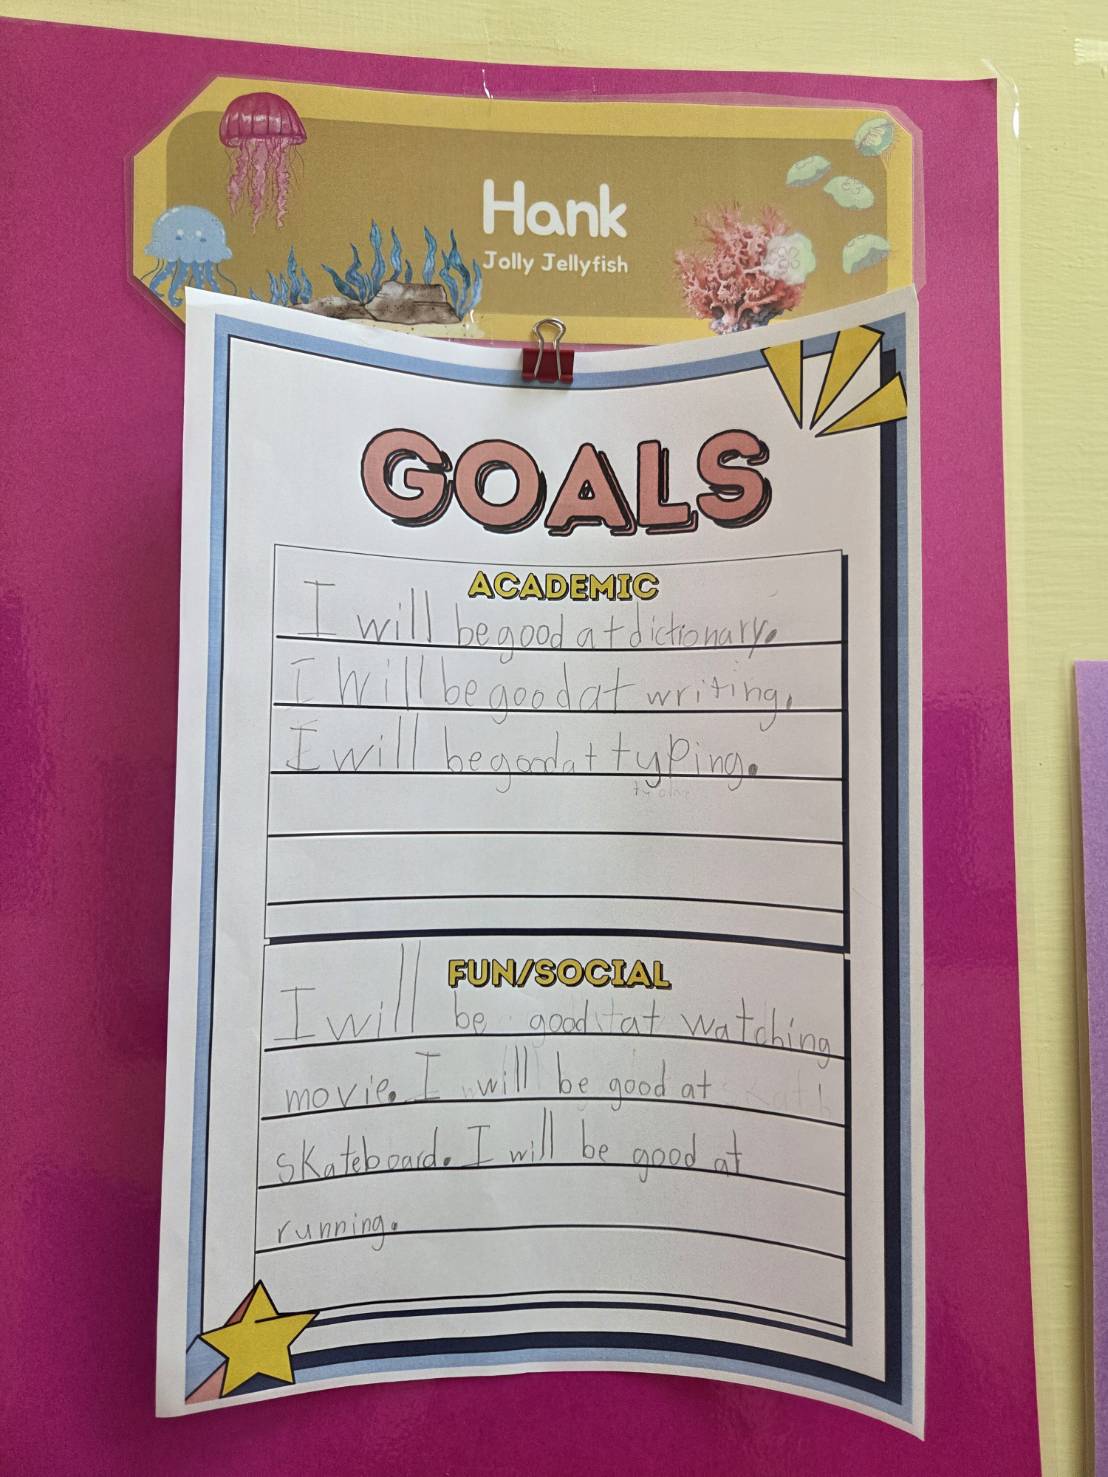 Hank
Jolly Jellyfish
GOALS
ACADEMIC
I will be good at dictionary.
I will be good at writing.
I will be good at typing.
FUN/SOCIAL
I will be good at watching
movie. I will be good at
skateboard. I will be good at
running.